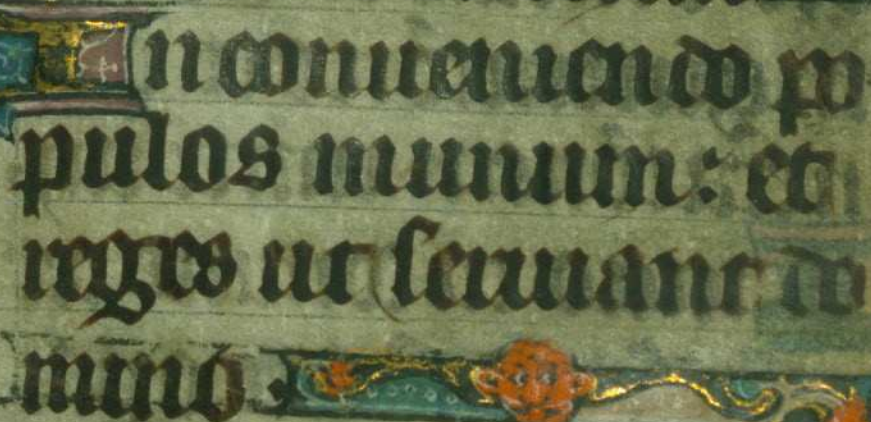 In conueniendo po
pulos inunum: et
reges ut seruiant do
mino.